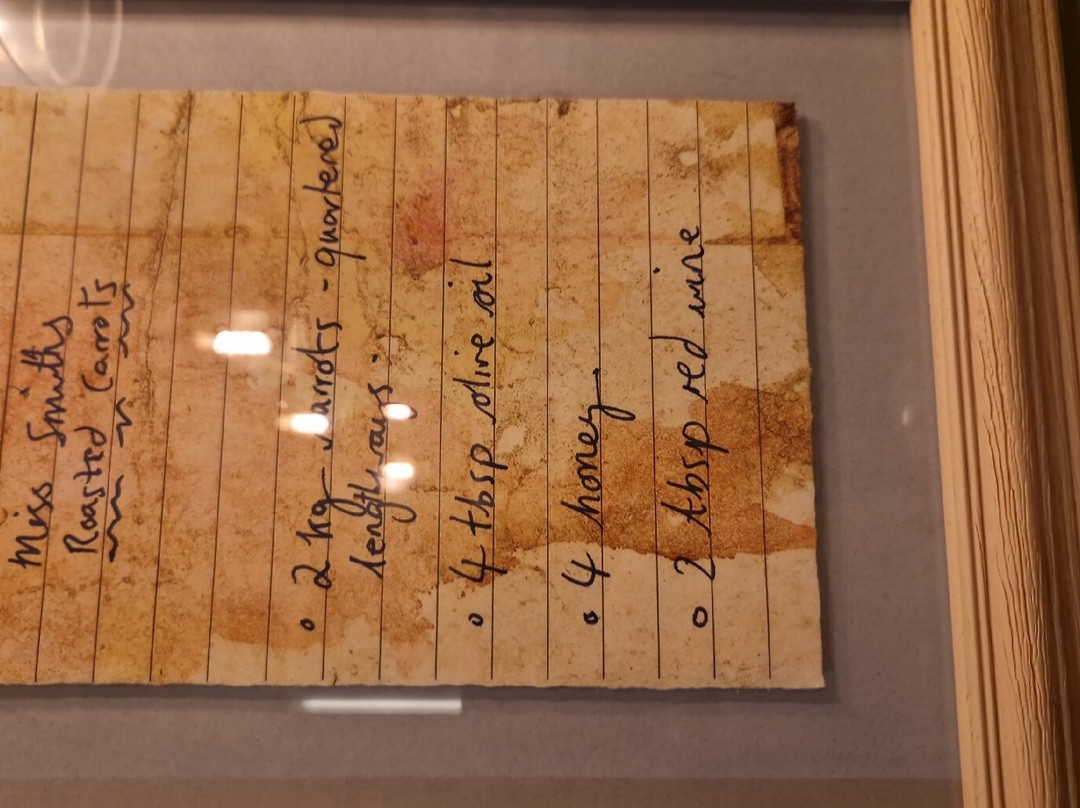 Miss Smiths
Roasted Carrots
• 2 kg carrots - quartered
lengthways.
• 4 tbsp olive oil
• 4 honey
• 2 tbsp red wine